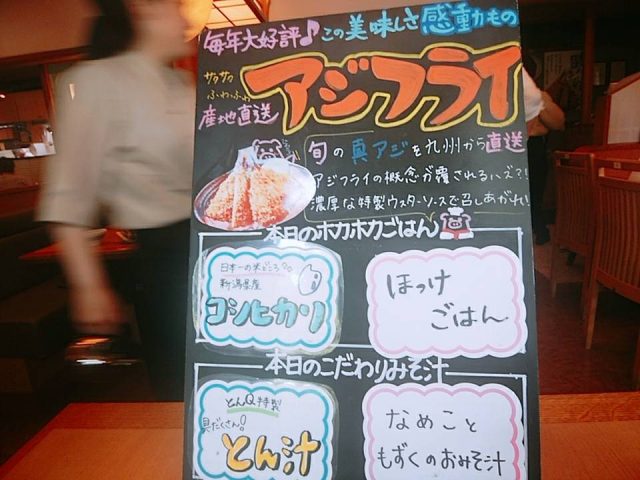 毎年大好評♪この美味しさ感動もの
サクサク
ふわふわ
産地直送
アジフライ
旬の真アジを九州から直送
アジフライの概念が覆されるハズ?!
濃厚な特製ウスターソースで召しあがれ!
本日のホカホカごはん
日本一の米どころ
新潟県産
コシヒカリ
ほっけ
ごはん
本日のこだわりみそ汁
とんQ特製
具だくさん!
とん汁
なめこと
もずくのおみそ汁